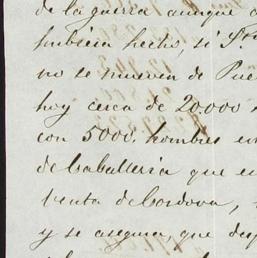 de la guerra aunque
hubiera hecho, si Sta
no se mueven de Pue
hoy cerca de 20.000
con 5000. hombres en
de caballeria que es
Venta de Cordova,
y se asegura, que des